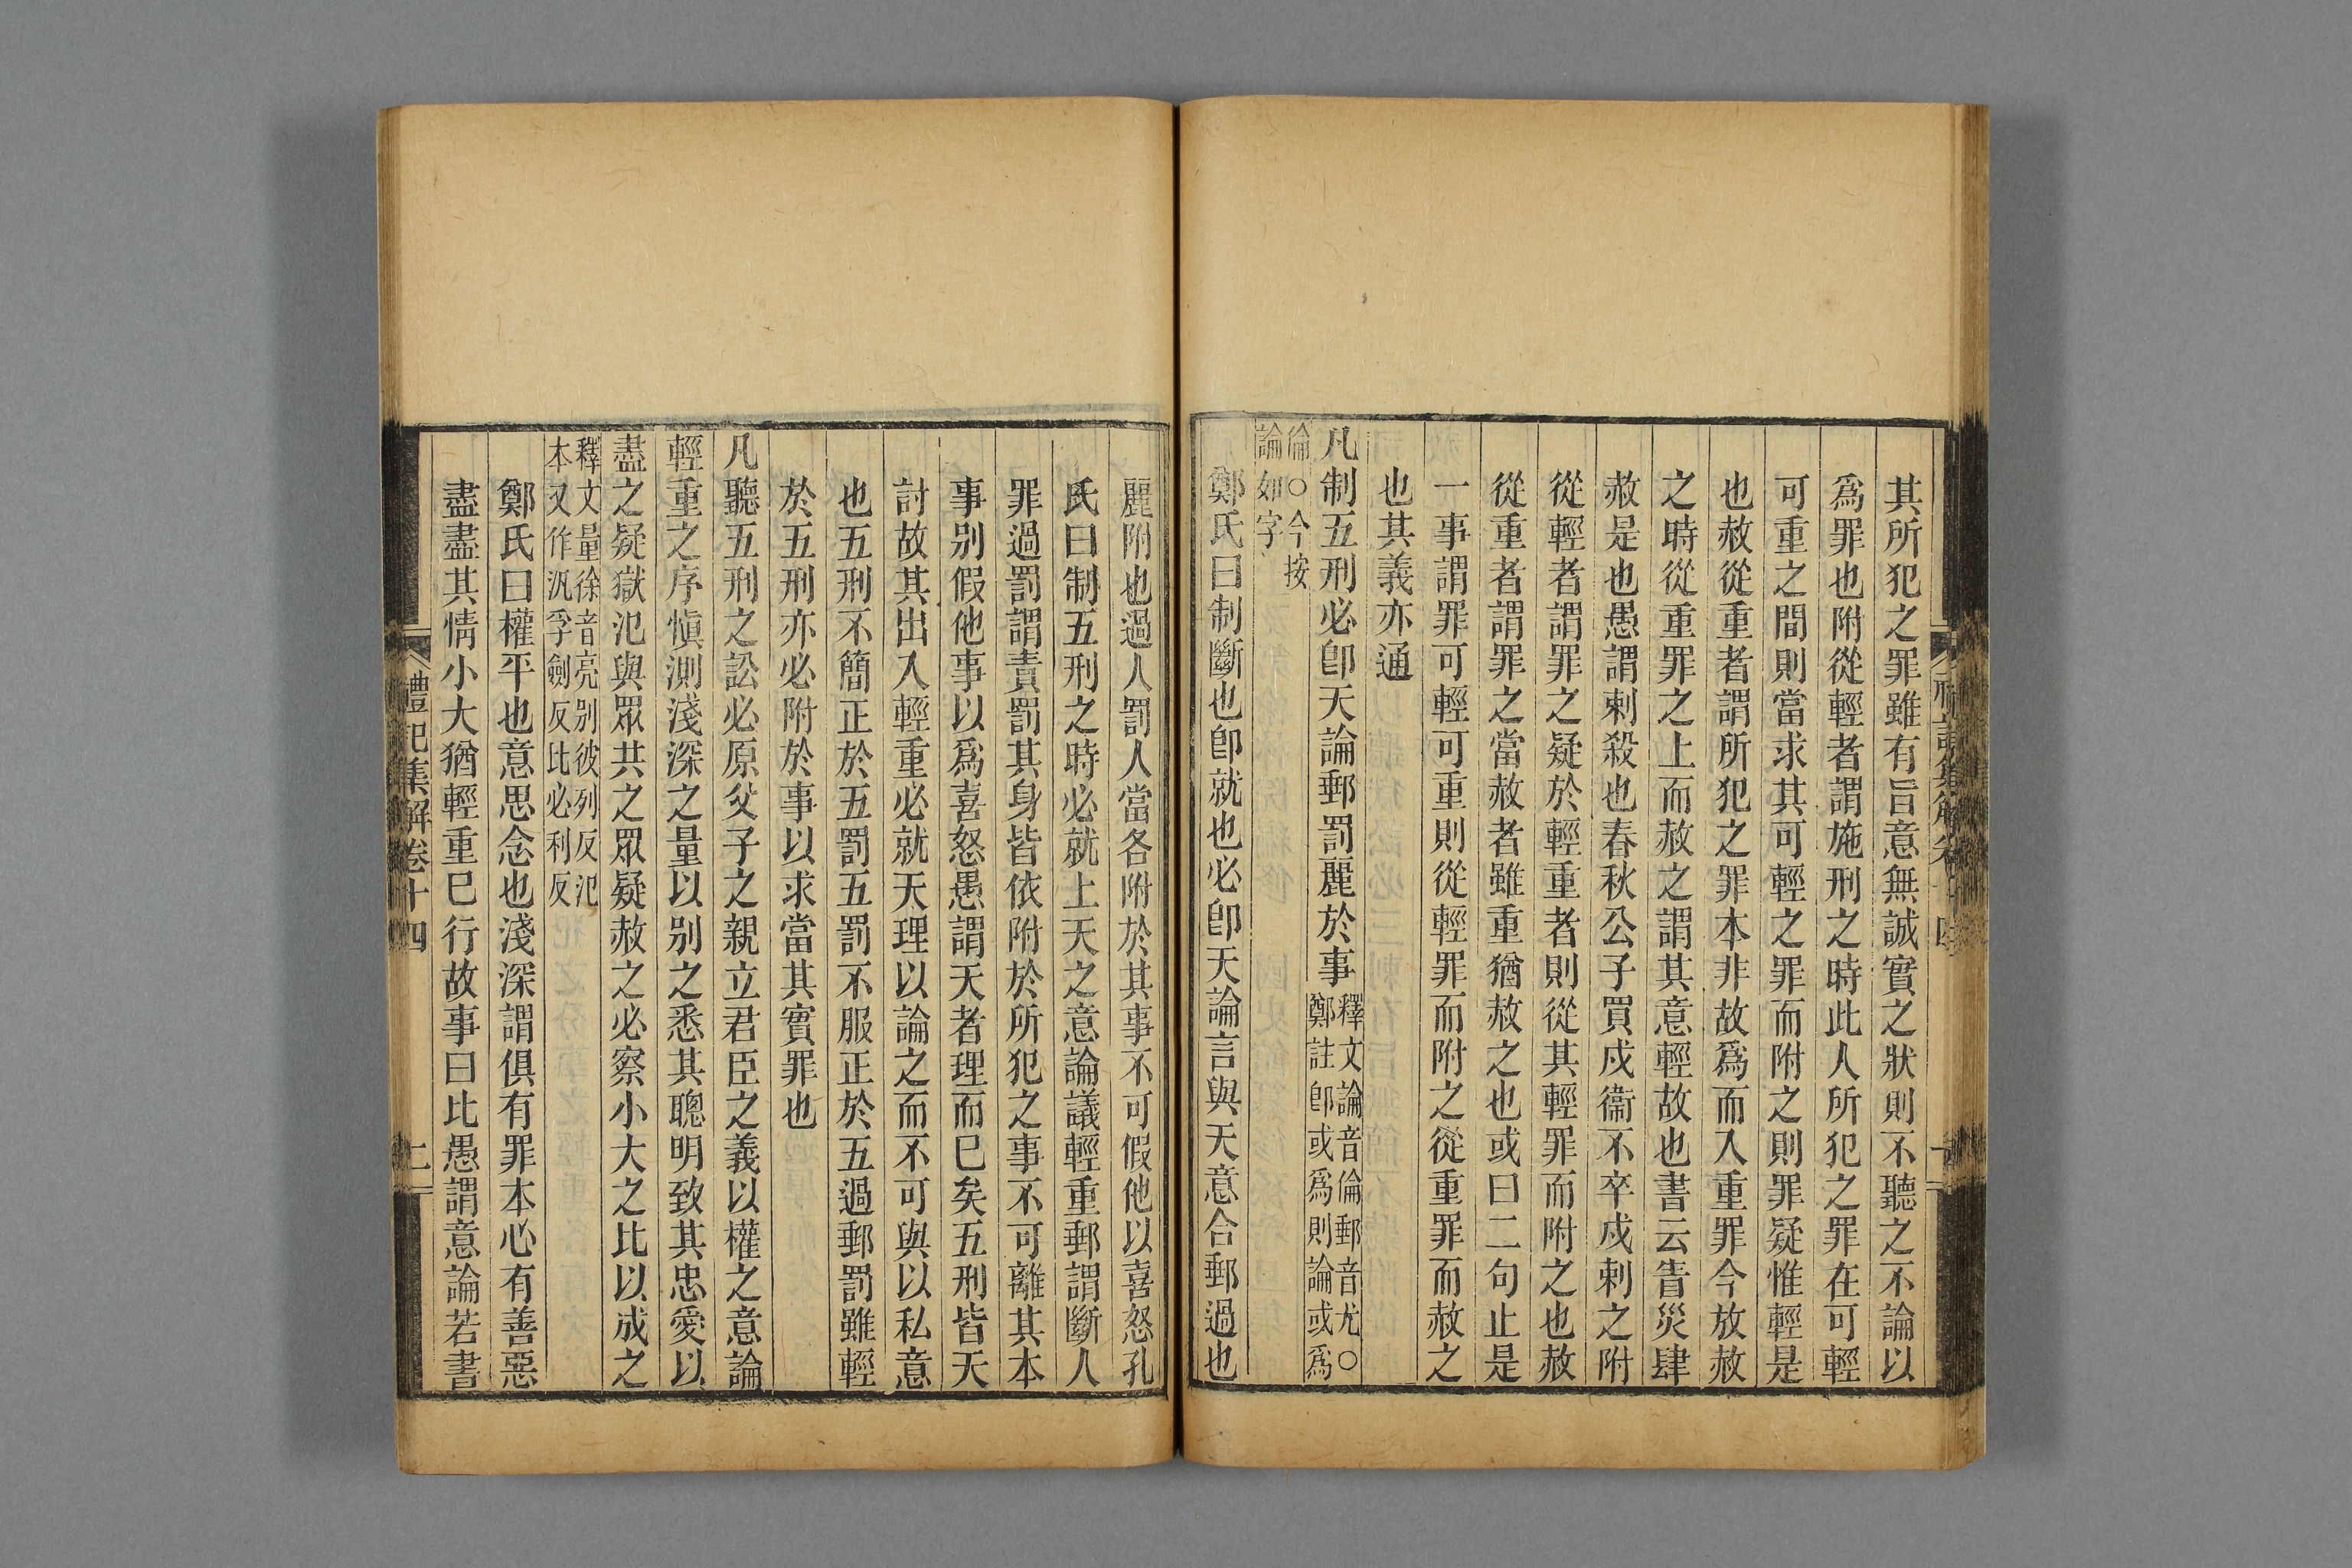 其所犯之罪雖有旨意無誠實之狀則不聽之不論以
爲罪也附從輕者謂施刑之時此人所犯之罪在可輕
可重之間則當求其可輕之罪而附之則罪疑惟輕是
也赦從重者謂所犯之罪本非故爲而入重罪今放赦
之時從重罪之上而赦之謂其意輕故也書云眚災肆
赦是也愚謂刺殺也春秋公子買戍衞不卒戍刺之附
從輕者謂罪之疑於輕重者則從其輕罪而附之也赦
從重者謂罪之當赦者雖重猶赦之也或曰二句止是
一事謂罪可輕可重則從輕罪而附之從重罪而赦之
也其義亦通
凡制五刑必卽天論郵罰麗於事
釋文論音倫郵音尤○
鄭註卽或爲則論或爲
倫○今按
論如字
鄭氏曰制斷也卽就也必卽天論言與天意合郵過也
麗附也過人罰人當各附於其事不可假他以喜怒孔
氏曰制五刑之時必就上天之意論議輕重郵謂斷人
罪過罰謂責罰其身皆依附於所犯之事不可離其本
事别假他事以爲喜怒愚謂天者理而巳矣五刑皆天
討故其出入輕重必就天理以論之而不可與以私意
也五刑不簡正於五罰五罰不服正於五過郵罰雖輕
於五刑亦必附於事以求當其實罪也
凡聽五刑之訟必原父子之親立君臣之義以權之意論
輕重之序愼測淺深之量以别之悉其聰明致其忠愛以
盡之疑獄氾與眾共之眾疑赦之必察小大之比以成之
釋文量徐音亮别彼列反氾
本又作汎孚劒反比必利反
鄭氏曰權平也意思念也淺深謂俱有罪本心有善惡
盡盡其情小大猶輕重巳行故事曰比愚謂意論若書
禮記集解卷十四
二